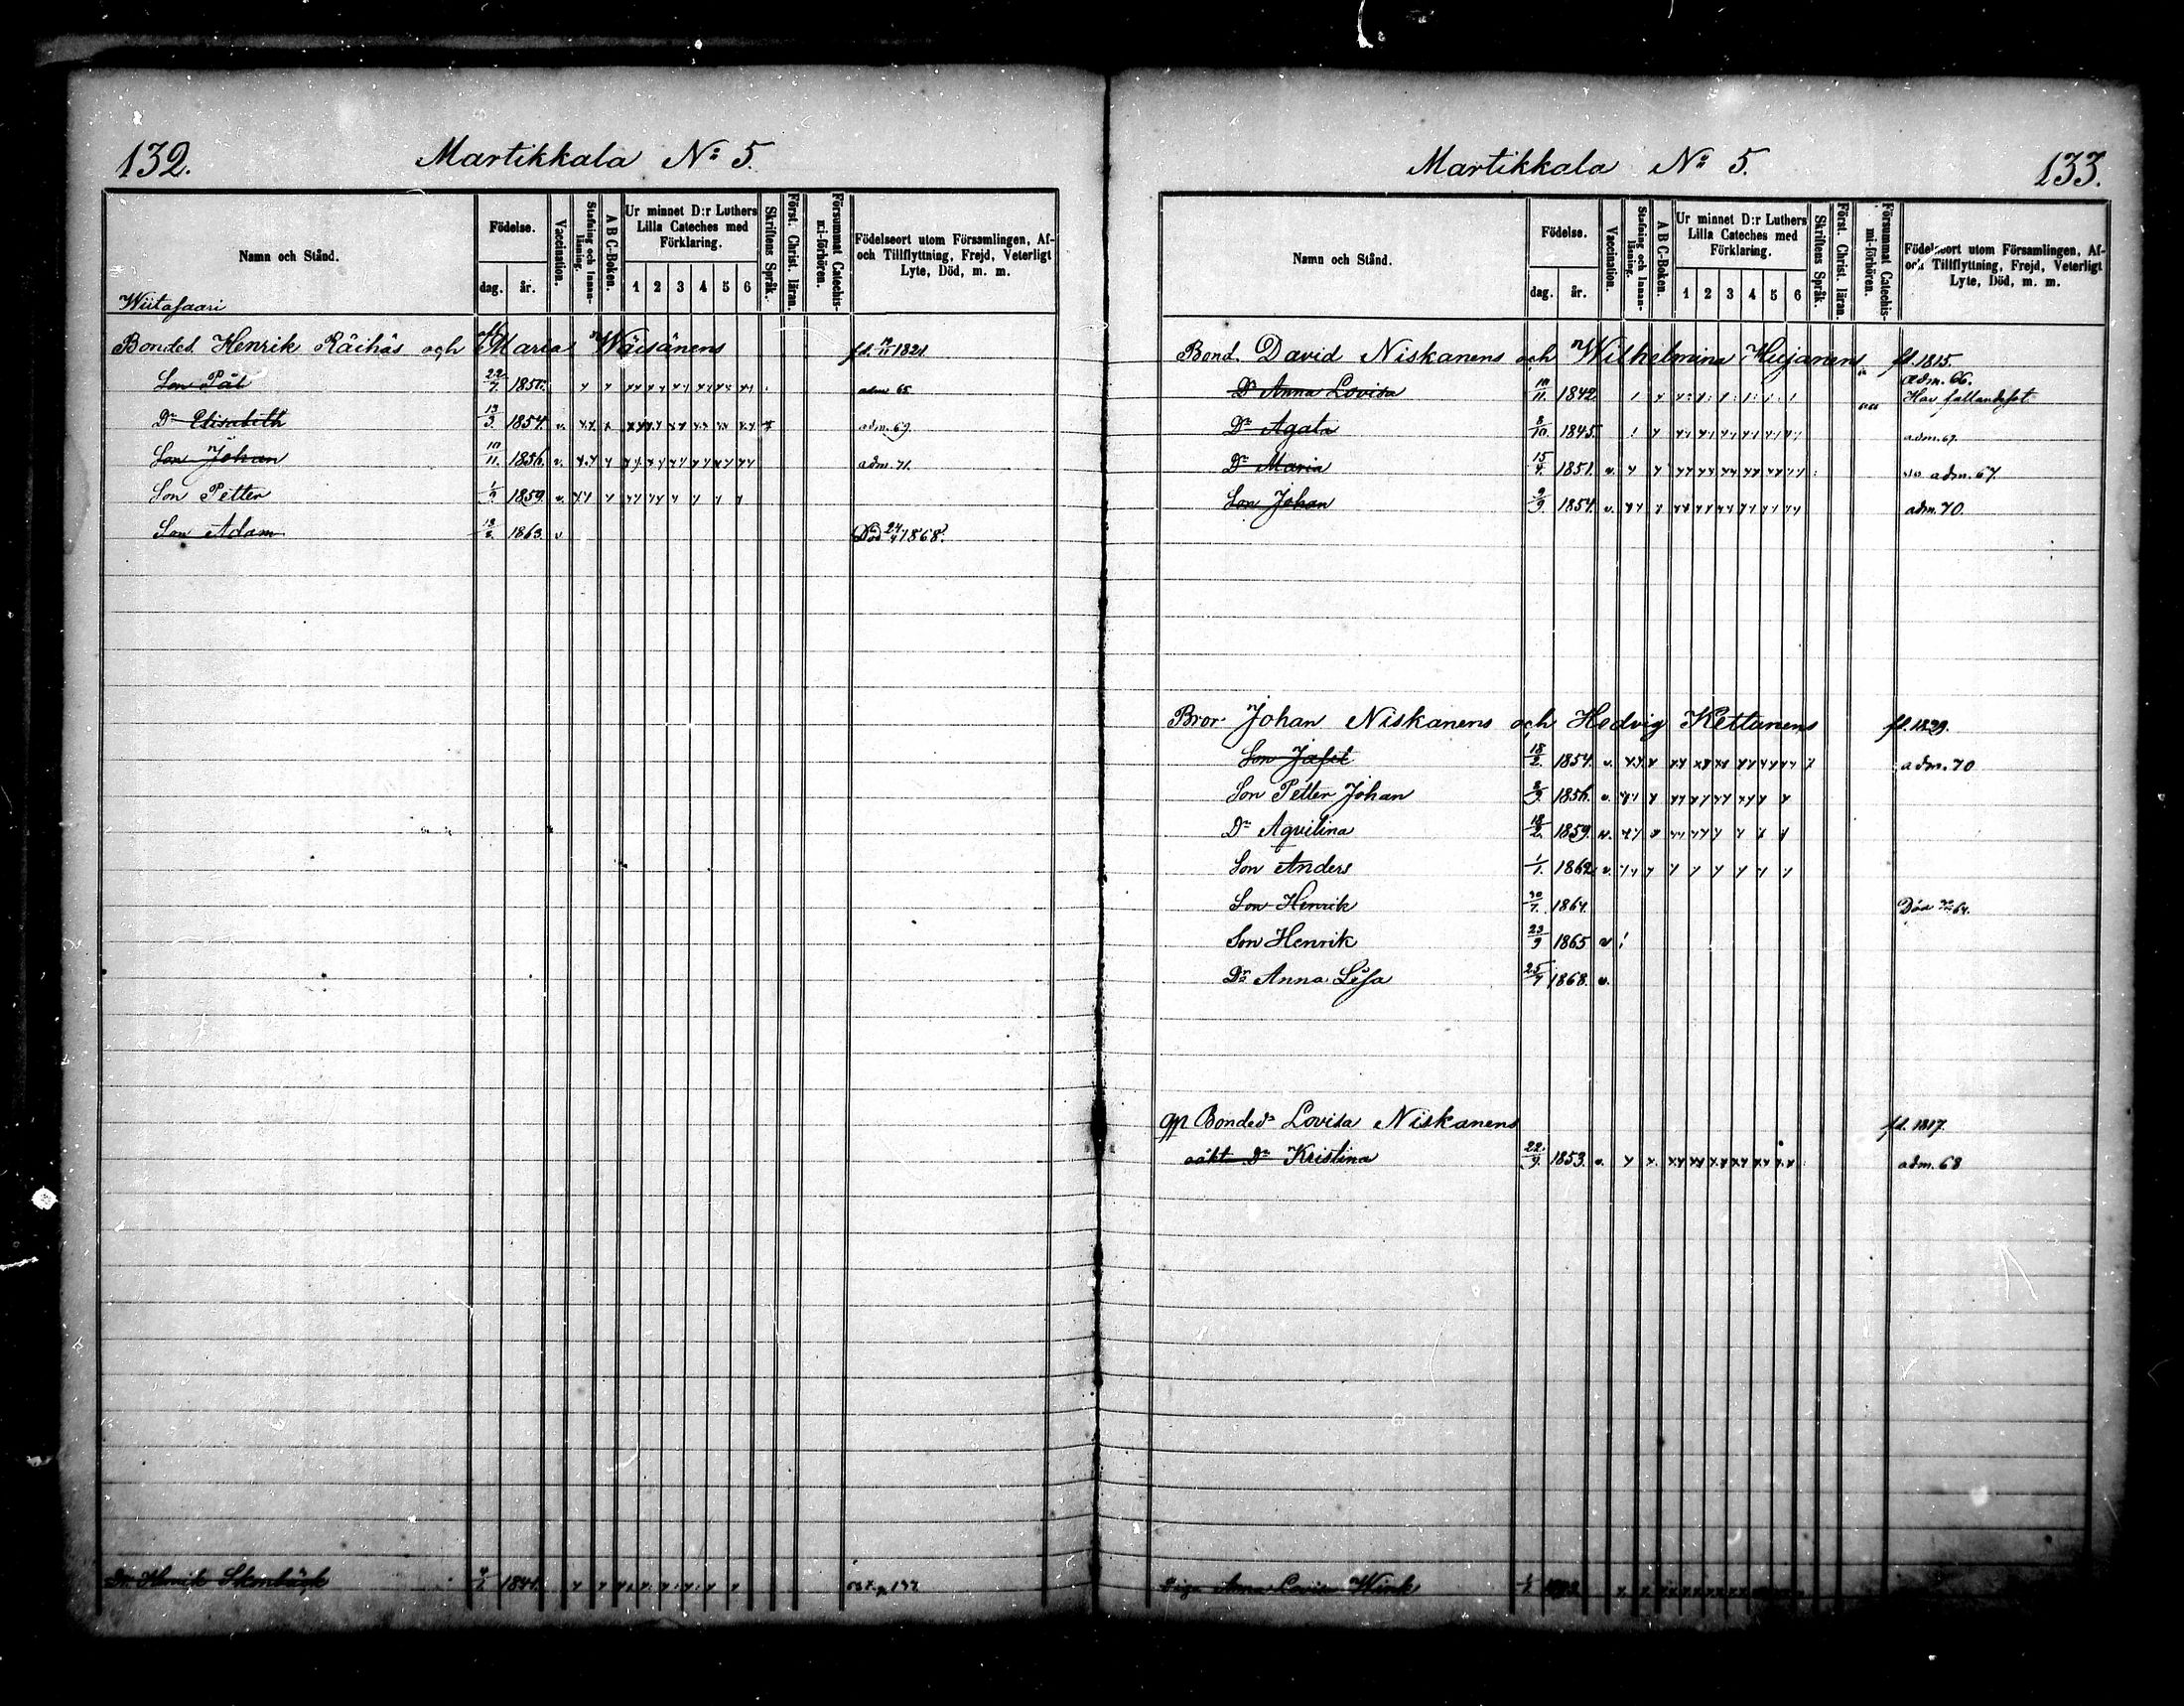 132.
Martikkala No 5.
Namn och Stånd.
Födelse.
dag. år.
Vaccination.
Stafning och Innan-läsning.
A B C-Boken.
Ur minnet D:r Luthers Lilla Cateches med Förklaring.
1 2 3 4 5 6
Skriftens Språk.
Först. Christ. läran.
Försummat Catechis-mi-förhören.
Födelseort utom Församlingen, Af- och Tillflyttning, Frejd, Veterligt Lyte, Död, m. m.
Wiitasaari
Bonded. Henrik Räihäs och Maria Wäisänens fd. 1821
Son Pål 22/7 185 adm 65.
Dr Elisabeth 13/3 1854 v. adm. 69.
Son Johan 10/11. 1856. v. adm. 71.
Son Petter 1859. v.
Son Adam 1863. v Död 24/4 1868.
Henrik Stenbäck 1841.
133.
Martikkala No 5.
Namn och Stånd.
Födelse.
dag. år.
Vaccination.
Stafning och Innan-läsning.
A B C-Boken.
Ur minnet D:r Luthers Lilla Cateches med Förklaring.
1 2 3 4 5 6
Skriftens Språk.
Först. Christ. läran.
Försummat Catechis-mi-förhören.
Födelseort utom Församlingen, Af- och Tillflyttning, Frejd, Veterligt Lyte, Död, m. m.
Bond. David Niskanens och Wilhelmina Hujanens fd. 1815.
Dr Anna Lovisa 10/11. 1842 adm. 66. Har fallandesot
Dr Agata 8/10. 1845. adm. 67.
Dr Maria 15/4 1851. v. adm. 67.
Son Johan 9/9. 1854. v. adm. 70.
Bror Johan Niskanens och Hedvig Kettunens fd. 1829.
Son Jafet 18/2. 1854. v. adm. 70
Son Petter Johan 8/9. 1856. v.
Dr Aqvilina 18/2. 1859. v.
Son Anders 1/1. 1862. v.
Son Henrik 1864. Död 64.
Son Henrik 23/9 1865 v
Dr Anna Lisa 25/7 1868. v.
Bonded. Lovisa Niskanens fd. 1817.
oäkt Dr Kristina 22/9. 1853. v. adm. 68
Piga Anna Lovisa Wink